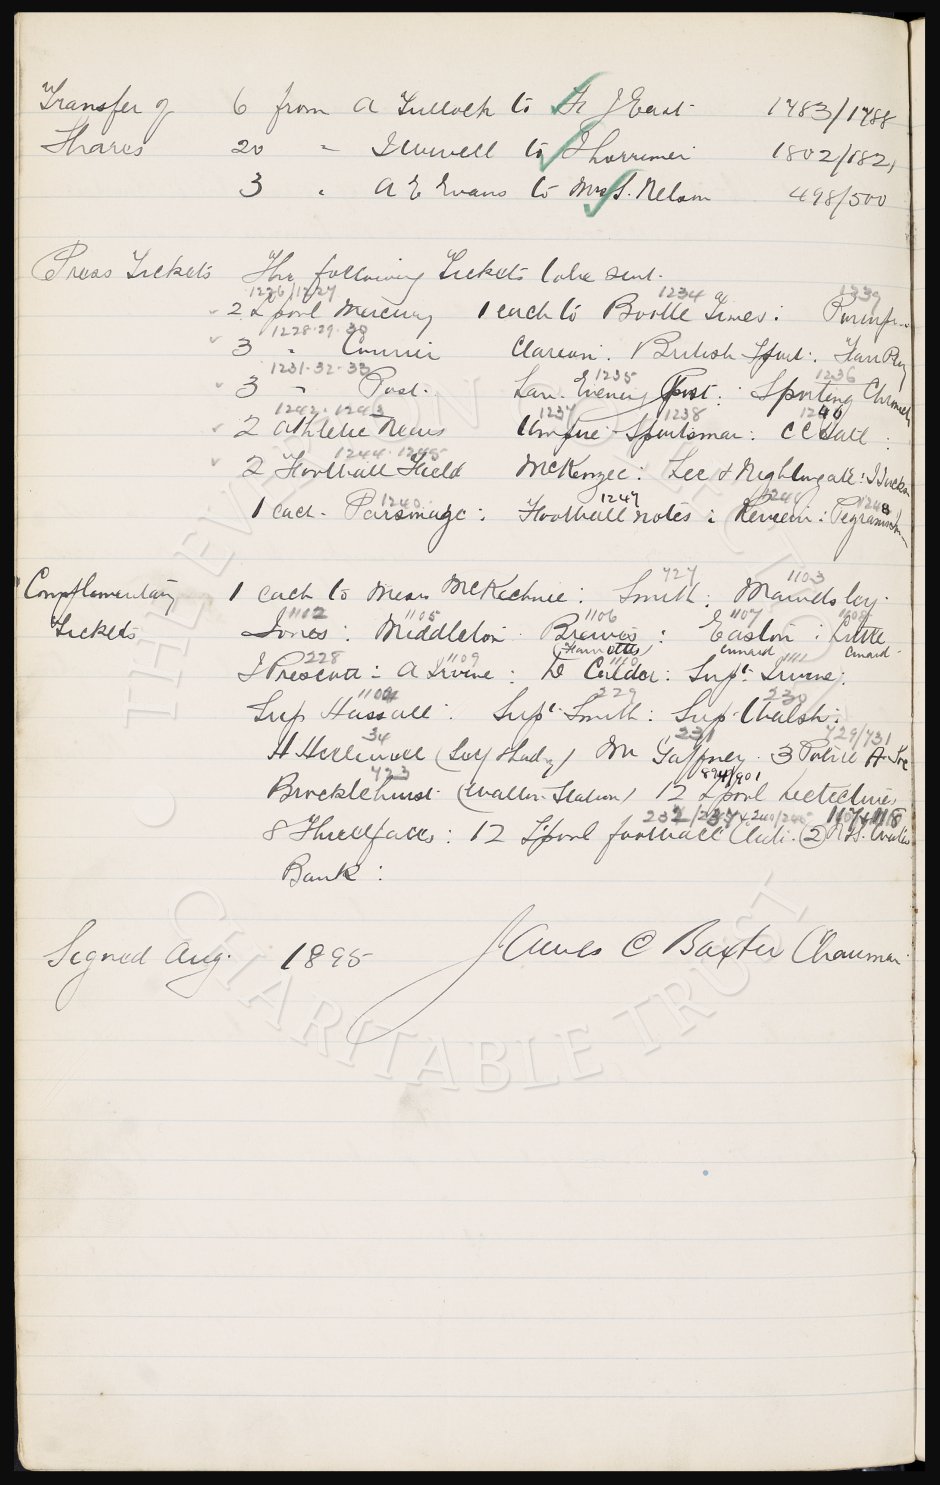 Transfer of 6 from A Tulloch to Fr J East 1483/1488
Shares 20 " J Clowell to J Lorrimer 1802/1821
3 " A E Evans to Mrs S. Nelson 498/500
Press Tickets The following Tickets to be sent.
1226/1227 1234 1239
2 L'pool Mercury 1 each to Bootle Times:
1228·29·30
3 " Courier Clarion: British Sport:
1231·32·33 1235 1236
3 " Post. Lan. Evening Post: Sporting Chronicle
1242·1243 1237 1238 1246
2 Athletic News Umpire Sportsman: CC Hall:
1244·1245
2 Football Field McKenzie: Lee & Nightingale: J Jackson
1240 1247 1248
1 each. Parsonage: Football notes: Review:
727 1103
Complimentary 1 each to Messrs McKechnie: Smith: Mawdsley.
1102 1105 1106 1107 1108
Tickets Jones: Middleton Brewis: Easton: Little
(Harriotts) Cunard Cunard
228 1109 1110 1111
J Prescott: A Irvine: D Calder: Supt Irvine:
1104 229 230
Sup Hassall: Supt Smith: Sup. Walsh:
34 231 729/731
H Hollinwell (Self & Lady) Mr Gaffney 3 Police A
723 894/901
Brocklehurst (Walton Station) 12 L'pool Detectives
232/237 & 240/245 1117 & 1118
8 Threlfalls: 12 L'pool football Club. (2)
Bank:
Signed Aug. 1895 James C Baxter Chairman
THE EVERTON COLLECTION
CHARITABLE TRUST